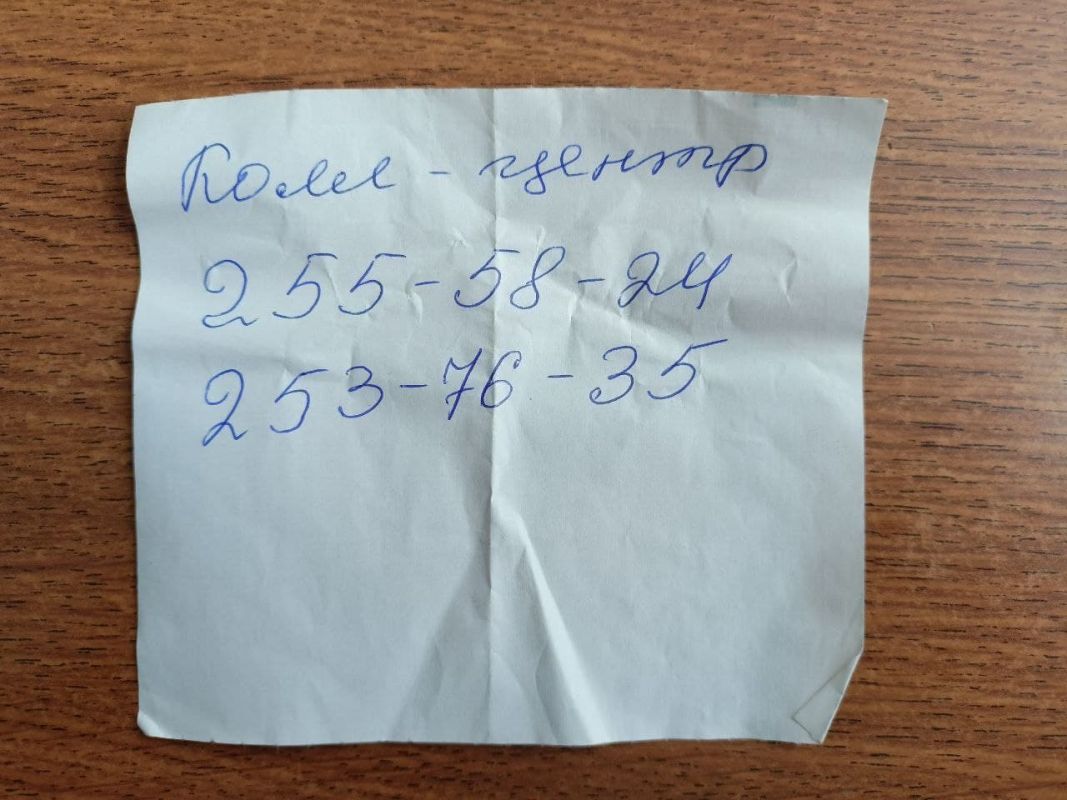 Колл-центр
255-58-24
253-76-35